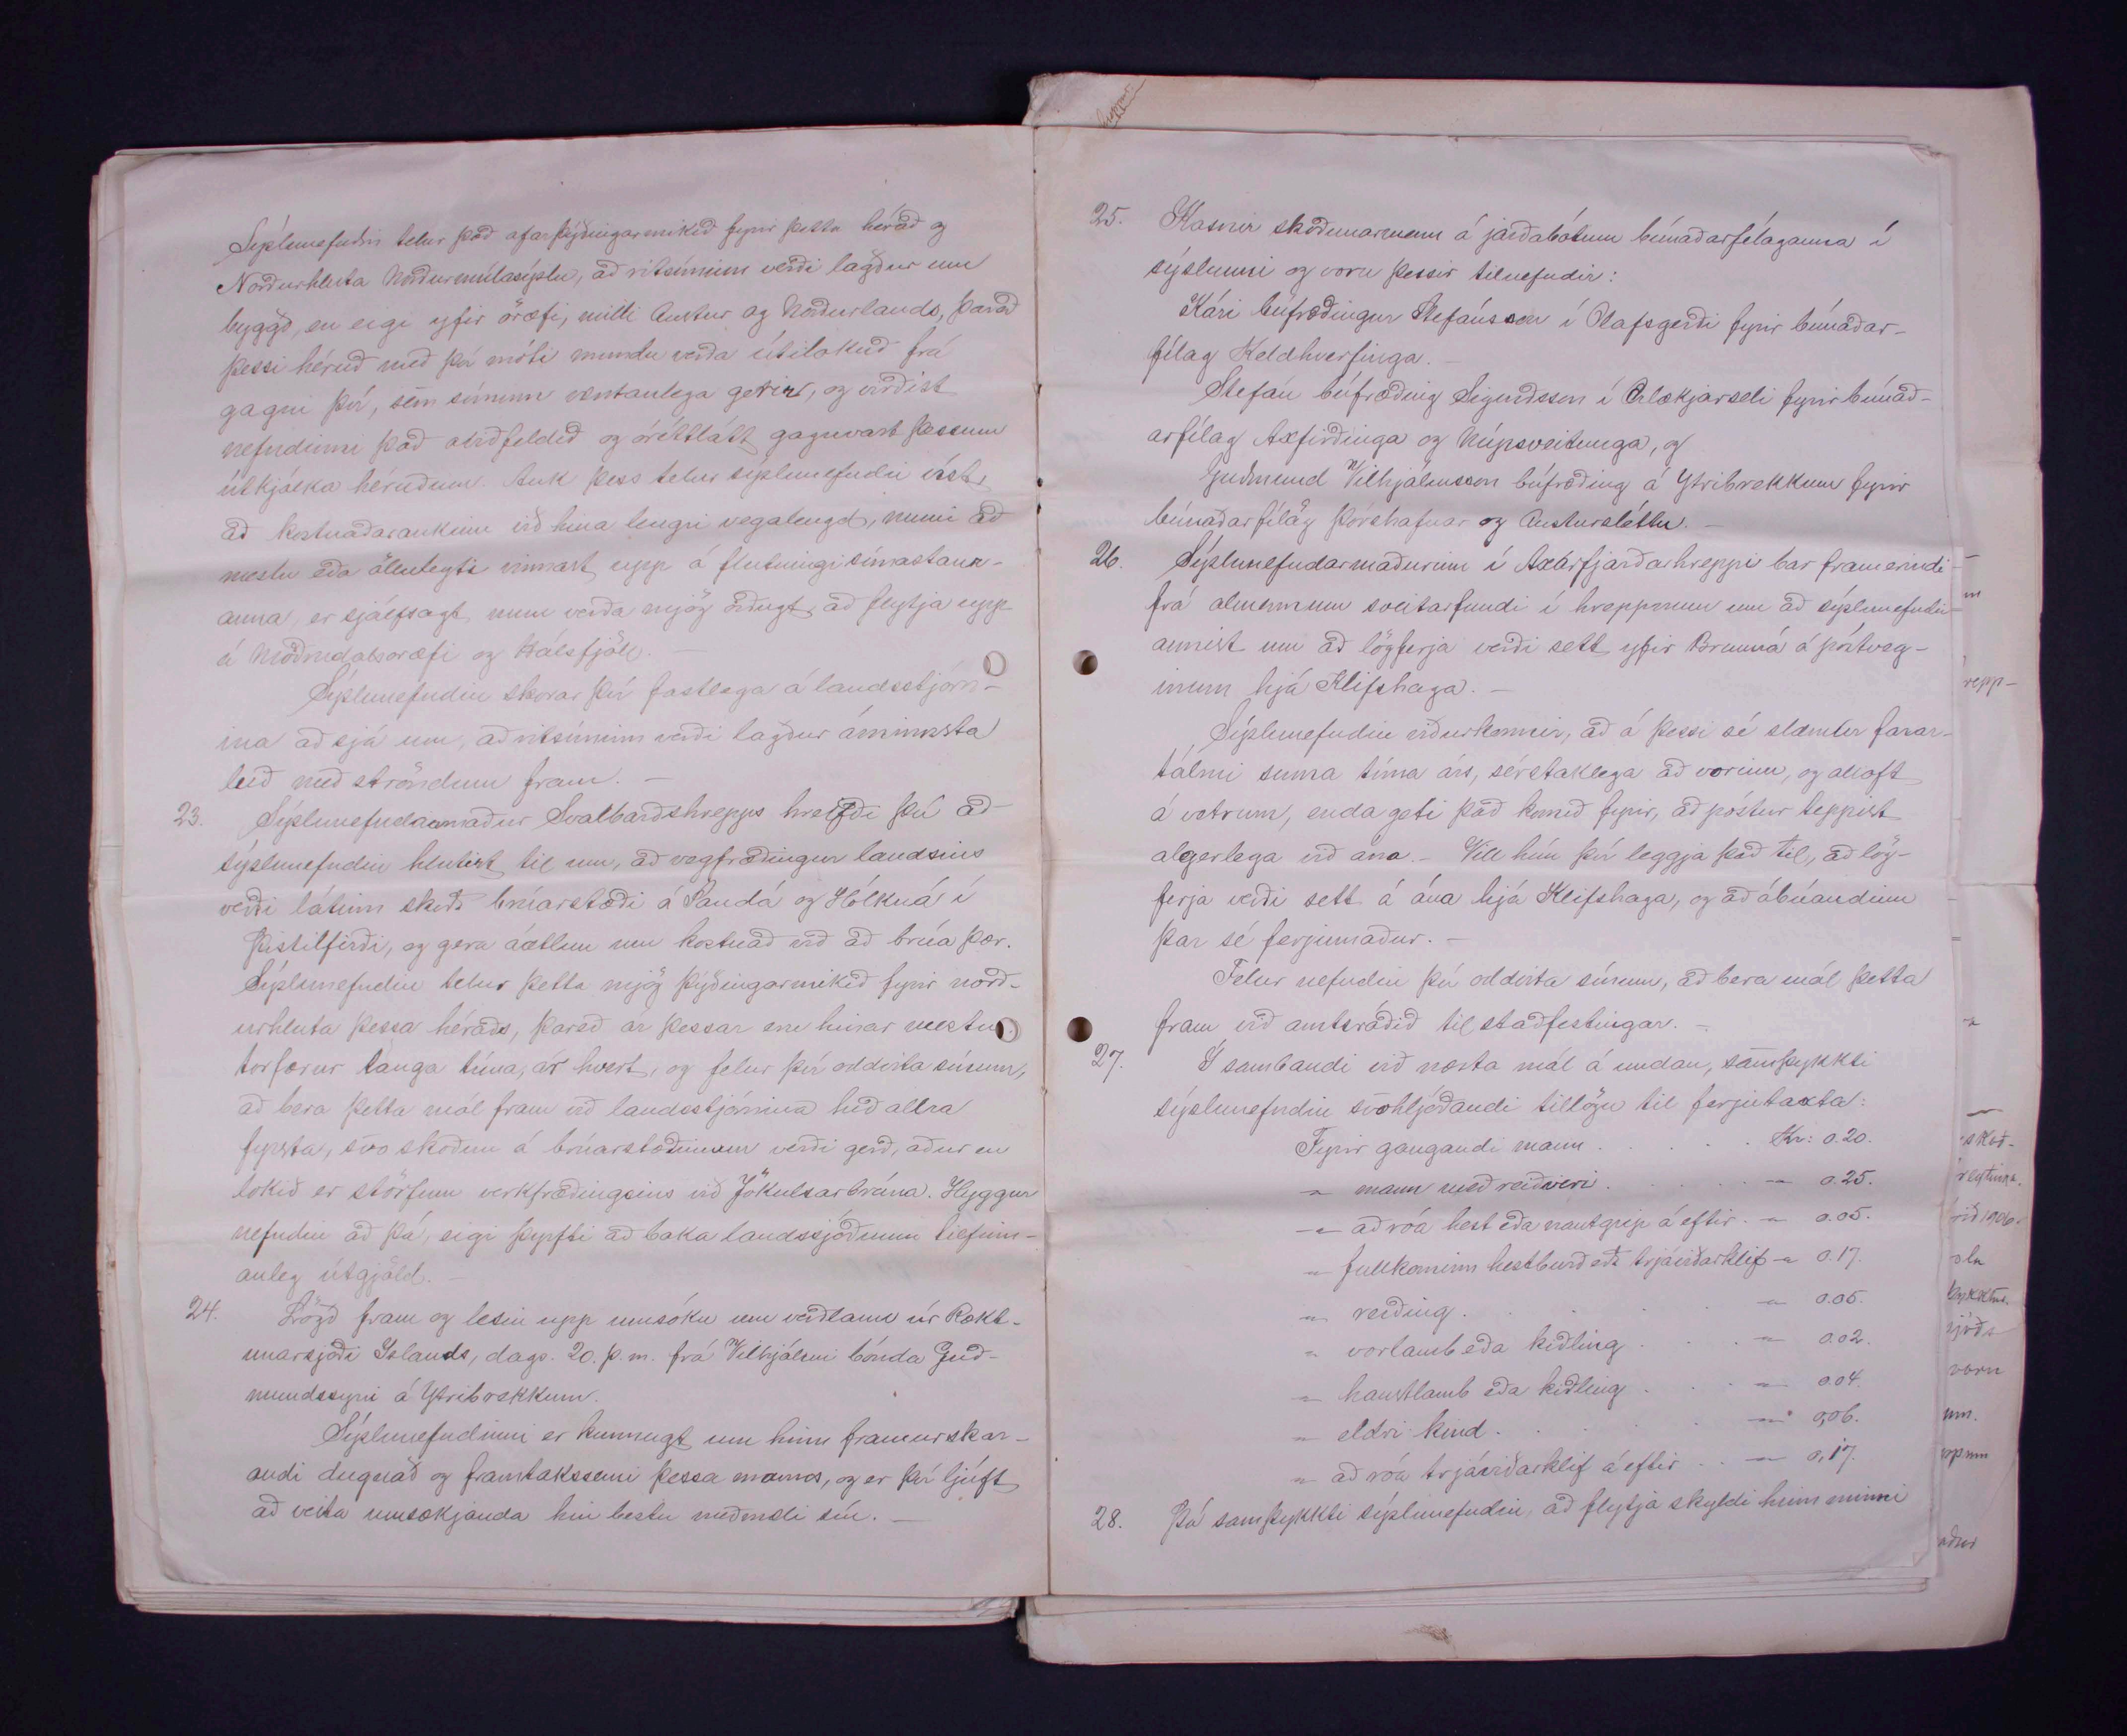 Sýslunefndin telur það afarþýðingarmikið fyrir þetta hérað og
Norðurhluta Norðurmúlasýslu, að ritsíminn verði lagður um
byggð, en eigi yfir öræfi, milli Austur og Norðurlands, þarað
þessi héruð með því móti mundu verða útilokuð frá
gagni því, sem síminn væntanlega gerir, og virðist
nefndinni það og óréttlátt gagnvart þessum
útkjálka héruðum. Auk þess telur sýslunefndin víst,
að kostnaðaraukinn við hina lengri vegalengd, muni að
mestu eða öllu leyti vinnast upp á flutningi símastaur-
anna, er sjálfsagt mun verða mjög örðugt að flytja upp
á Möðrudalsöræfi og Hálsfjöll. —
Sýslunefndin skorar því fastlega á landsstjórn-
ina að sjá um, að ritsíminn verði lagður áminnsta
leið með ströndum fram. —
23. Sýslunefndarmaður Svalbarðshrepps hreifði því að
sýslunefndin hlutist til um, að vegfræðingur landsins
verði látinn skoða brúarstæði á Sandá og Hölkná í
Þistilfirði, og gera áætlun um kostnað við að brúa þær.
Sýslunefndin telur þetta mjög þýðingarmikið fyrir norð-
urhluta þessa héraðs, þareð ár þessar eru hinar mestu
torfærur langa tíma, ár hvert, og felur því oddvita sínum,
að bera þetta mál fram við landsstjórnina hið allra
fyrsta, svo skoðun á brúarstæðunum verði gerð, aður en
lokið er störfum verkfræðingsins við Jökulsárbrúna. Hyggur
nefndin að þá, eigi þyrfti að baka landssjóðnum tilfinn-
anleg útgjöld. —
24. Lögð fram og lesin upp umsókn um verðlaun úr Rækt-
unarsjóði Íslands, dags. 20. þ. m. frá Vilhjálmi bónda Guð-
mundssyni á Ytribrekkum.
Sýslunefndinni er kunnugt um hinn framurskar-
andi dugnað og framtakssemi þessa manns, og er því ljúft
að veita umsækjanda hin bestu meðmæli sín. —
25. Kosnir skoðunarmenn á jarðabótum búnaðarfélaganna í
sýslunni og voru þessir tilnefndir:
Kári búfræðingur Stefánsson í Ólafsgerði fyrir búnaðar-
félag Keldhverfinga. —
Stefán búfræðing Sigurðsson í Ærlækjarseli fyrir búnað-
arfélag Axfirðinga og Núpsveitunga, og
Guðmund Vilhjálmsson búfræðing á Ytribrekkum fyrir
búnaðarfélög Þórshafnar og Austursléttu. —
26. Sýslunefndarmaðurinn í Axarfjarðarhreppi bar fram erindi
frá almennum sveitarfundi í hreppnum um að sýslunefndin
annist um að lögferja verði sett yfir Brunná á póstveg-
inum hjá Klifshaga. —
Sýslunefndin viðurkennir, að á þessi sé slæmur farar-
tálmi suma tíma árs, sérstaklega að vorinu, og all oft
á vetrum, enda geti það komið fyrir, að póstur teppist
algerlega við ána. — Vill hún því leggja það til, að lög-
ferja verði sett á ána hjá Klifshaga, og að ábúandinn
þar sé ferjumaður. —
Felur nefndin því oddvita sínum, að bera mál þetta
fram við amtsráðið til staðfestingar. —
27. Í sambandi við næsta mál á undan, samþykkti
sýslunefndin svohljóðandi tillögu til ferjutaxta:
Fyrir gangandi mann . . . . Kr: 0.20.
— mann með reiðveri . . . . — 0.25.
— að róa hest eða nautgrip á eftir . — 0.05.
— fullkominn hestburð eða trjáviðarklif — 0.17.
— reiðing . . . . . — 0.05.
— vorlamb eða kiðling . . . — 0.02.
— haustlamb eða kiðling . . . — 0.04.
— eldri kind . . . . . — 0,06.
— að róa trjáviðarklif á eftir . . — 0,17.
28. Þá samþykkti sýslunefndin, að flytja skyldi heim minni